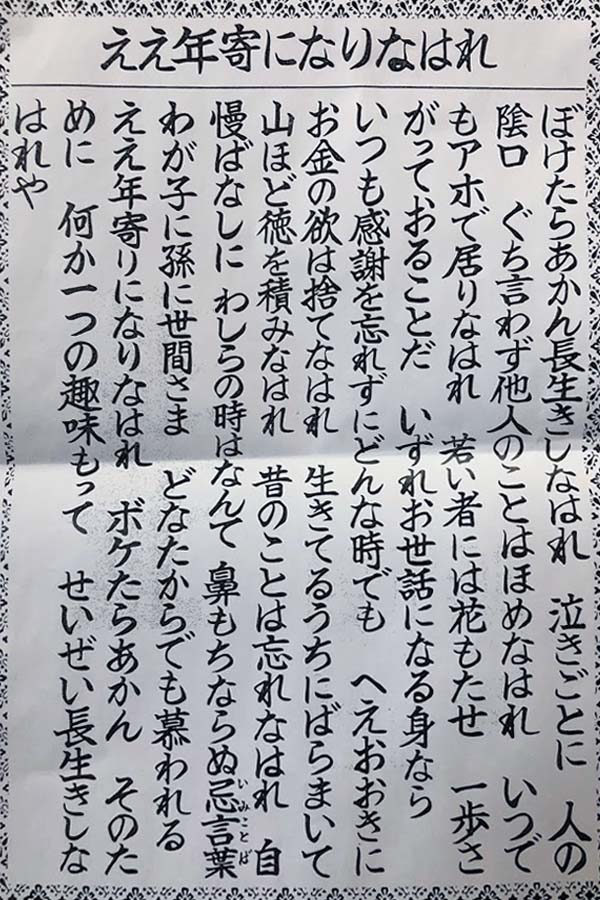 ええ年寄になりなはれ
ぼけたらあかん長生きしなはれ　泣きごとに　人の
陰口　ぐち言わず他人のことはほめなはれ　いつで
もアホで居りなはれ　若い者には花もたせ　一歩さ
がっておることだ　いずれお世話になる身なら
いつも感謝を忘れずにどんな時でも　へえおおきに
お金の欲は捨てなはれ　生きてるうちにばらまいて
山ほど徳を積みなはれ　昔のことは忘れなはれ　自
慢ばなしに　わしらの時はなんて　鼻もちならぬ忌言葉
いみことば
わが子に孫に世間さま　どなたからでも慕われる
ええ年寄りになりなはれ　ボケたらあかん　そのた
めに　何か一つの趣味もって　せいぜい長生きしな
はれや